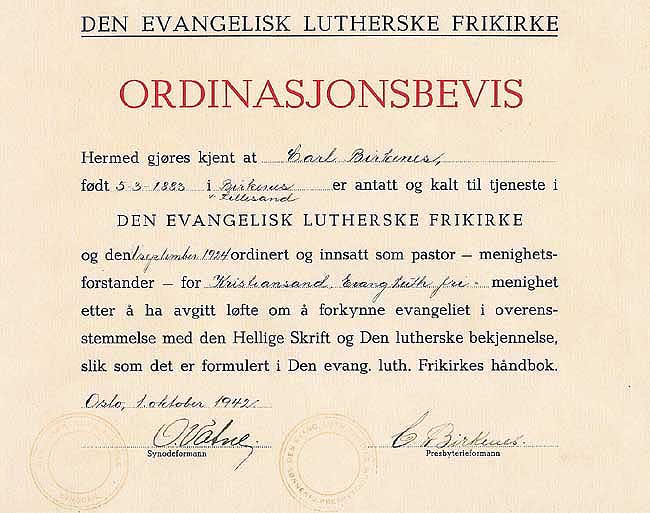 DEN EVANGELISK LUTHERSKE FRIKIRKE
ORDINASJONSBEVIS
Hermed gjøres kjent at Carl Birkenes,
født 5-3-1883 i Birkenes er antatt og kalt til tjeneste i
v. Lillesand
DEN EVANGELISK LUTHERSKE FRIKIRKE
og den 1 september 1924 ordinert og innsatt som pastor – menighets-
forstander – for Kristiansand Evang luth fri - menighet
etter å ha avgitt løfte om å forkynne evangeliet i overens-
stemmelse med den Hellige Skrift og Den lutherske bekjennelse,
slik som det er formulert i Den evang. luth. Frikirkes håndbok.
Oslo, 1. oktober 1942.
O. Vatne. C. Birkenes.
Synodeformann Presbyterieformann